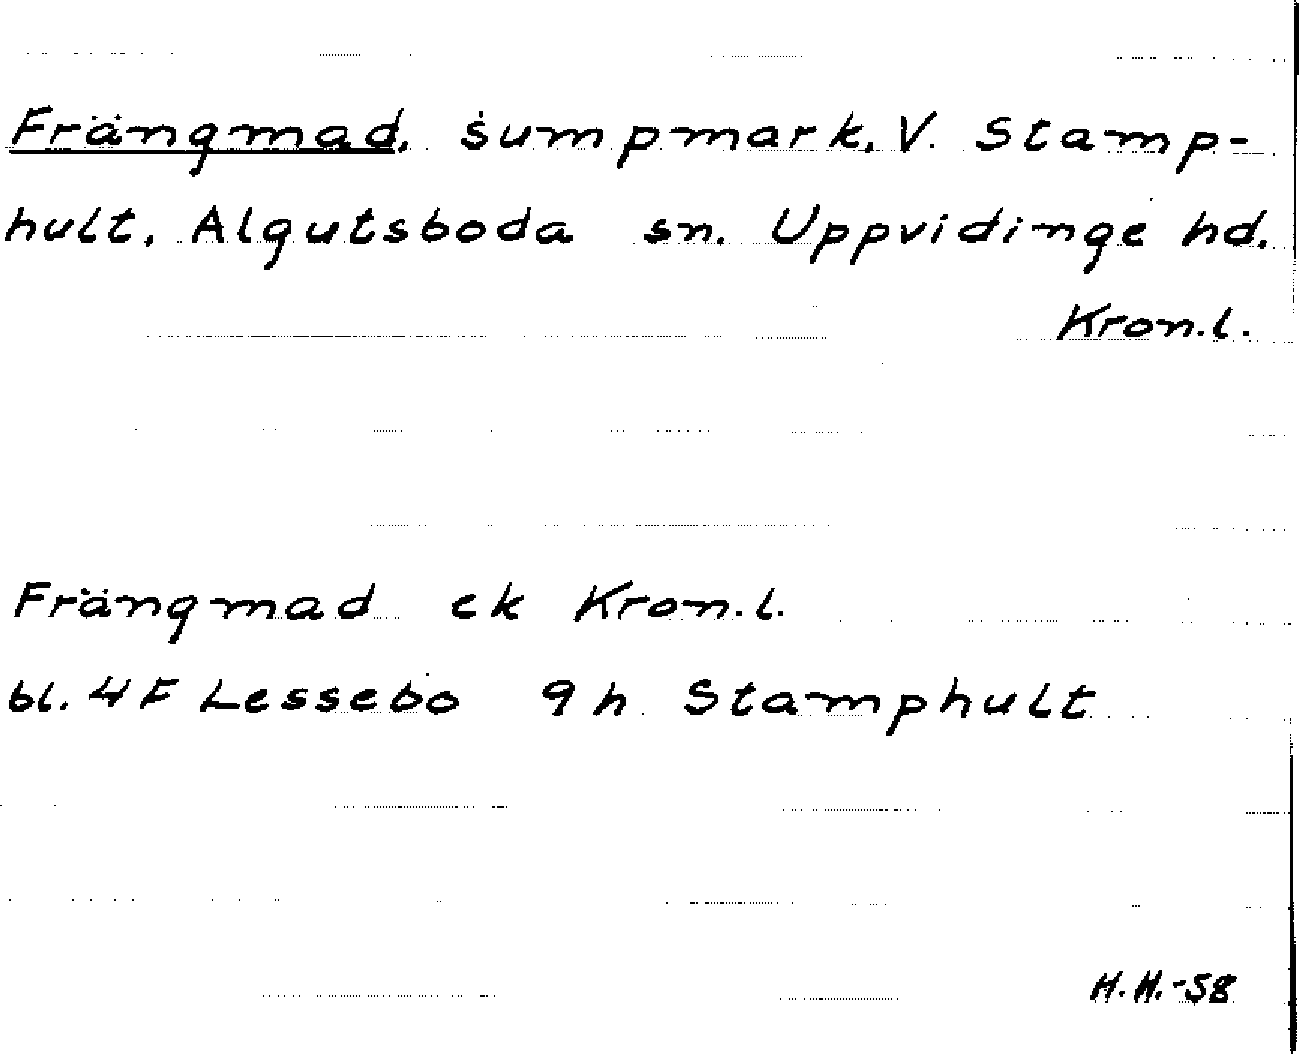 Frängmad, sumpmark, V. Stamp-
hult, Algutsboda sn. Uppvidinge hd.
Kron.l.
Frängmad ek Kron.l.
bl. 4F Lessebo 9h Stamphult
H.H.-58